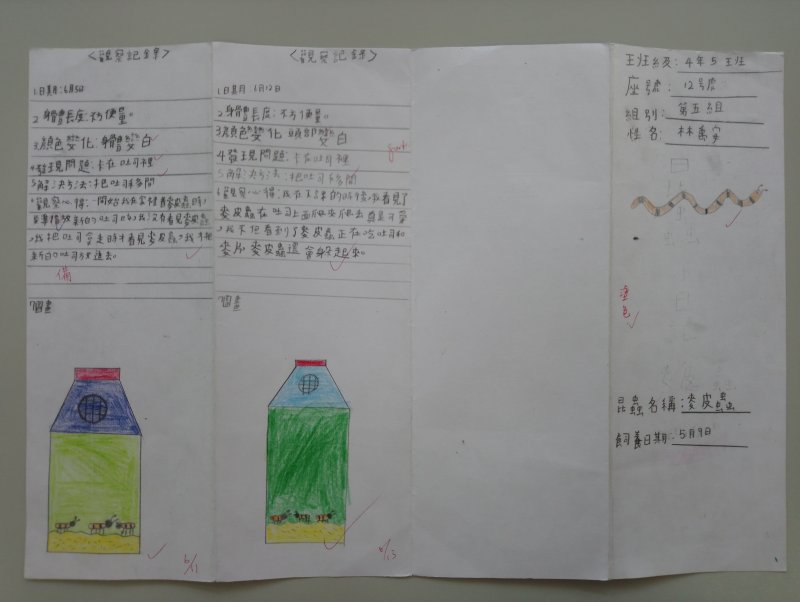 <觀察記錄>
1日期:6月5日
2身體長度:不方便量。
3顏色變化:身體變白
4發現問題:卡在吐司裡
5解決方法:把吐司移開
6觀察心得:一開始我在當
新的吐司
我把吐司拿走時才看見麥皮蟲,我才把
新的吐司放進去。
備
7圖畫
6/11
<觀察記錄>
1日期:6月12日
2身體長度:不方便量。
3顏色變化:頭部變白
4發現問題:卡在吐司裡
5解決方法:把吐司移開
6觀察心得:我在下課的時候,我看見了
麥皮蟲在吐司上面爬來爬去真是可愛
,我不但看到了麥皮蟲正在吃吐司和
麥片,麥皮蟲還會躲起來。
7圖畫
6/13
班級:4年5班
座號:12號
組別:第五組
姓名:林萬安
塗色
昆蟲名稱:麥皮蟲
飼養日期:5月9日